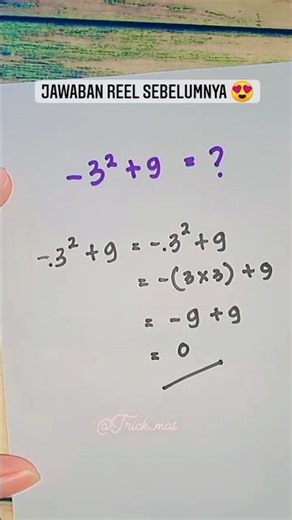 JAWABAN REEL SEBELUMNYA 😍
-3² + 9 = ?
-.3² + 9 = -.3² + 9
= -(3×3) + 9
= -9 + 9
= 0
@Trick_mat